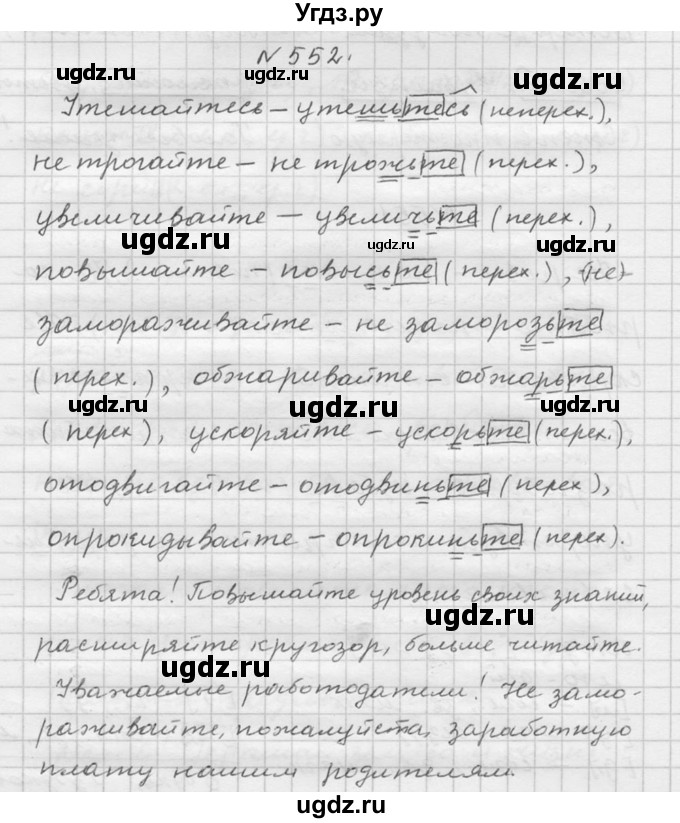 Угдз.ру
N 552.
Утешайтесь – утешьтесь (неперех.),
не трогайте – не трожьте (перех.),
увеличивайте – увеличьте (перех.),
ugdz.ru ugdz.ru ugdz.ru
повышайте – повысьте (перех.), (не)-
замораживайте – не заморозьте
(перех.), обжаривайте – обжарьте
ugdz.ru ugdz.ru ugdz.ru
(перех), ускоряйте – ускорьте (перех.),
отодвигайте – отодвиньте (перех),
опрокидывайте – опрокиньте (перех).
Ребята! Повышайте уровень своих знаний,
ugdz.ru
расширяйте кругозор, больше читайте.
ugdz.ru
Уважаемые работодатели! Не замо-
раживайте, пожалуйста, заработную
плату нашим родителям.
ugdz.ru